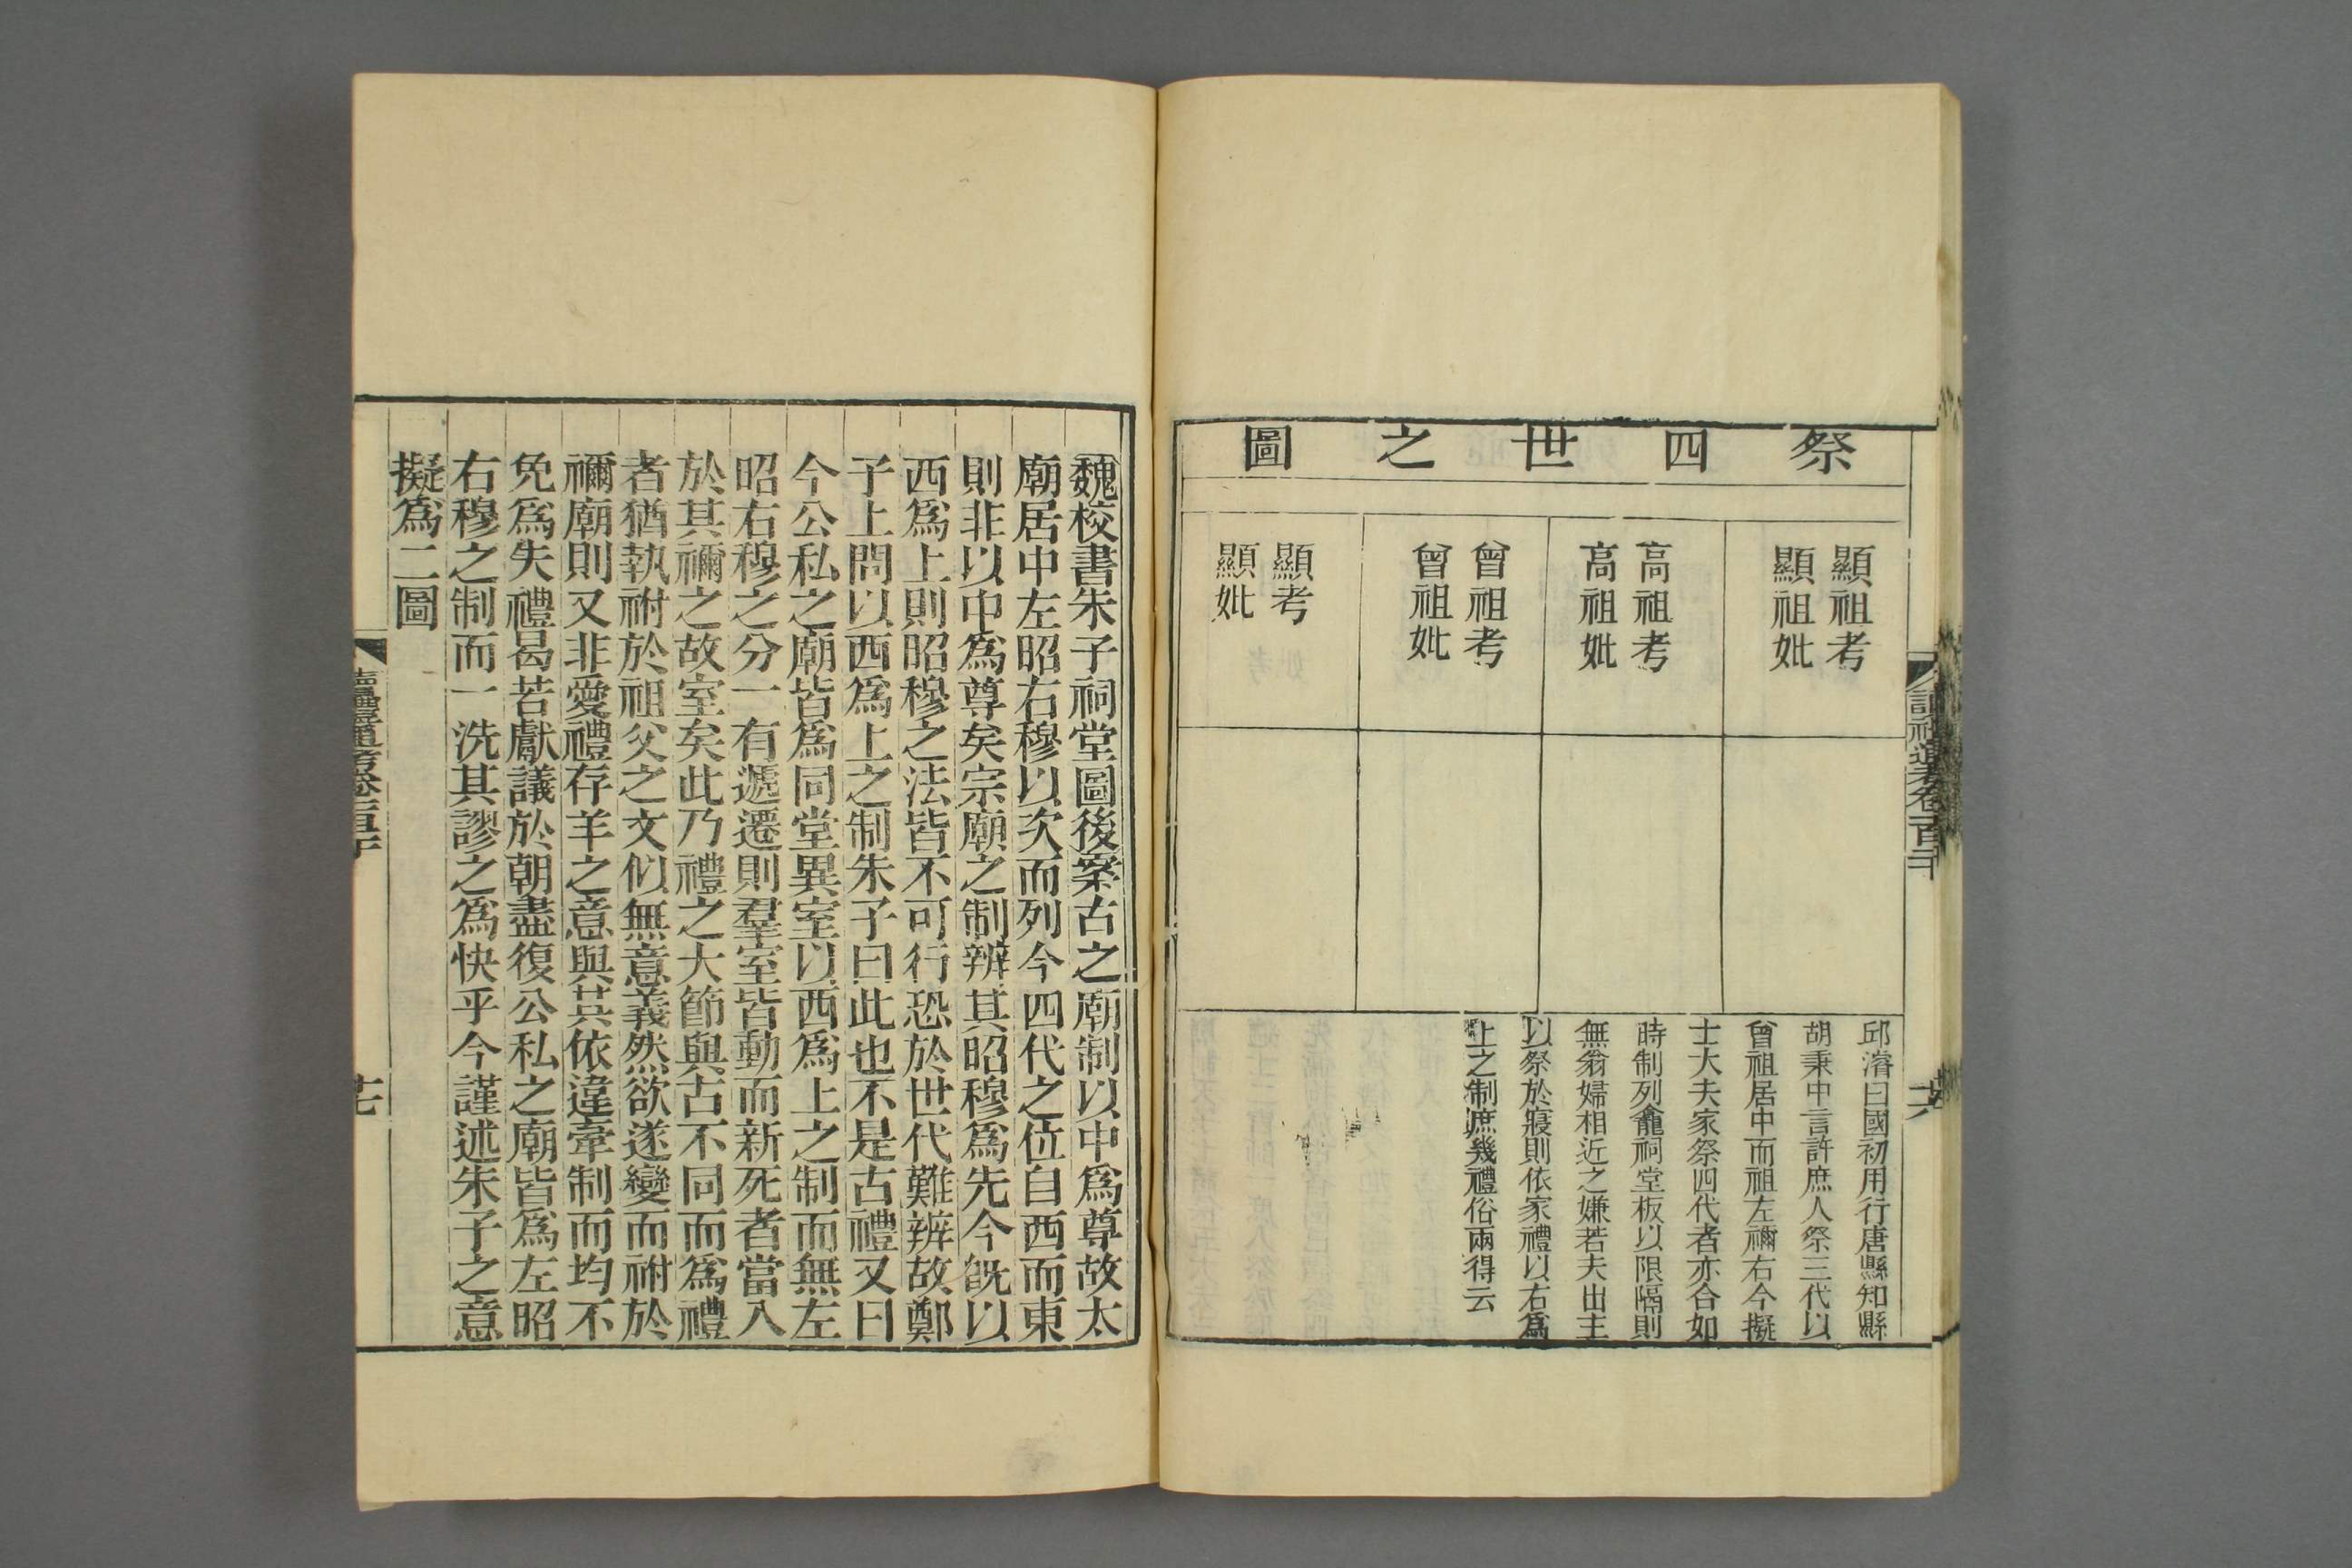 祭四世之圖
顯祖考
顯祖妣
高祖考
高祖妣
曾祖考
曾祖妣
顯考
顯妣
邱濬曰國初用行唐縣知縣
胡秉中言許庶人祭三代以
曾祖居中而祖左禰右今擬
士大夫家祭四代者亦合如
時制列龕祠堂板以限隔則
無翁婦相近之嫌若夫出主
以祭於寢則依家禮以右爲
上之制庶幾禮俗兩得云
讀禮通考卷一百二十
十六
魏校書朱子祠堂圖後案古之廟制以中爲尊故太
廟居中左昭右穆以次而列今四代之位自西而東
則非以中爲尊矣宗廟之制辨其昭穆爲先今旣以
西爲上則昭穆之法皆不可行恐於世代難辨故鄭
子上問以西爲上之制朱子曰此也不是古禮又曰
今公私之廟皆爲同堂異室以西爲上之制而無左
昭右穆之分一有遞遷則羣室皆動而新死者當入
於其禰之故室矣此乃禮之大節與古不同而爲禮
者猶執祔於祖父之文似無意義然欲遂變而祔於
禰廟則又非愛禮存羊之意與其依違牽制而均不
免爲失禮曷若獻議於朝盡復公私之廟皆爲左昭
右穆之制而一洗其謬之爲快乎今謹述朱子之意
擬爲二圖
讀禮通考卷一百二十
十七